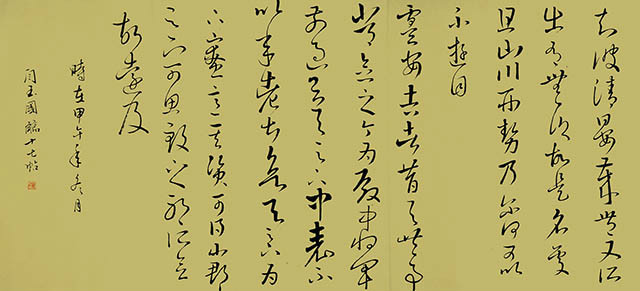 知彼清晏歲豐又所
出有無鄉故是名處
且山川形勢乃爾何可以
不遊目
虞安吉者昔與共事
常念之今為殿中將軍
前過云與足下中表不
以年老甚欲與足下為
下寮意其資可得小郡
足下可思致之耶所念
故遠及
時在甲午年冬月
玉國臨十七帖